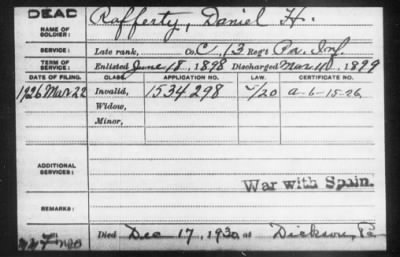 DEAD
NAME OF SOLDIER: Rafferty, Daniel H.
SERVICE: Late rank, Co. C, 13 Reg't Pa. Inf.
TERM OF SERVICE: Enlisted June 18, 1898 Discharged Mar. 11, 1899
DATE OF FILING. CLASS. APPLICATION NO. LAW. CERTIFICATE NO.
1926 Mar 22 Invalid, 1534298 a-6-15-26
Widow,
Minor,
ADDITIONAL SERVICES:
War with Spain.
REMARKS:
Died Dec 17, 1930 at Dickson, Pa